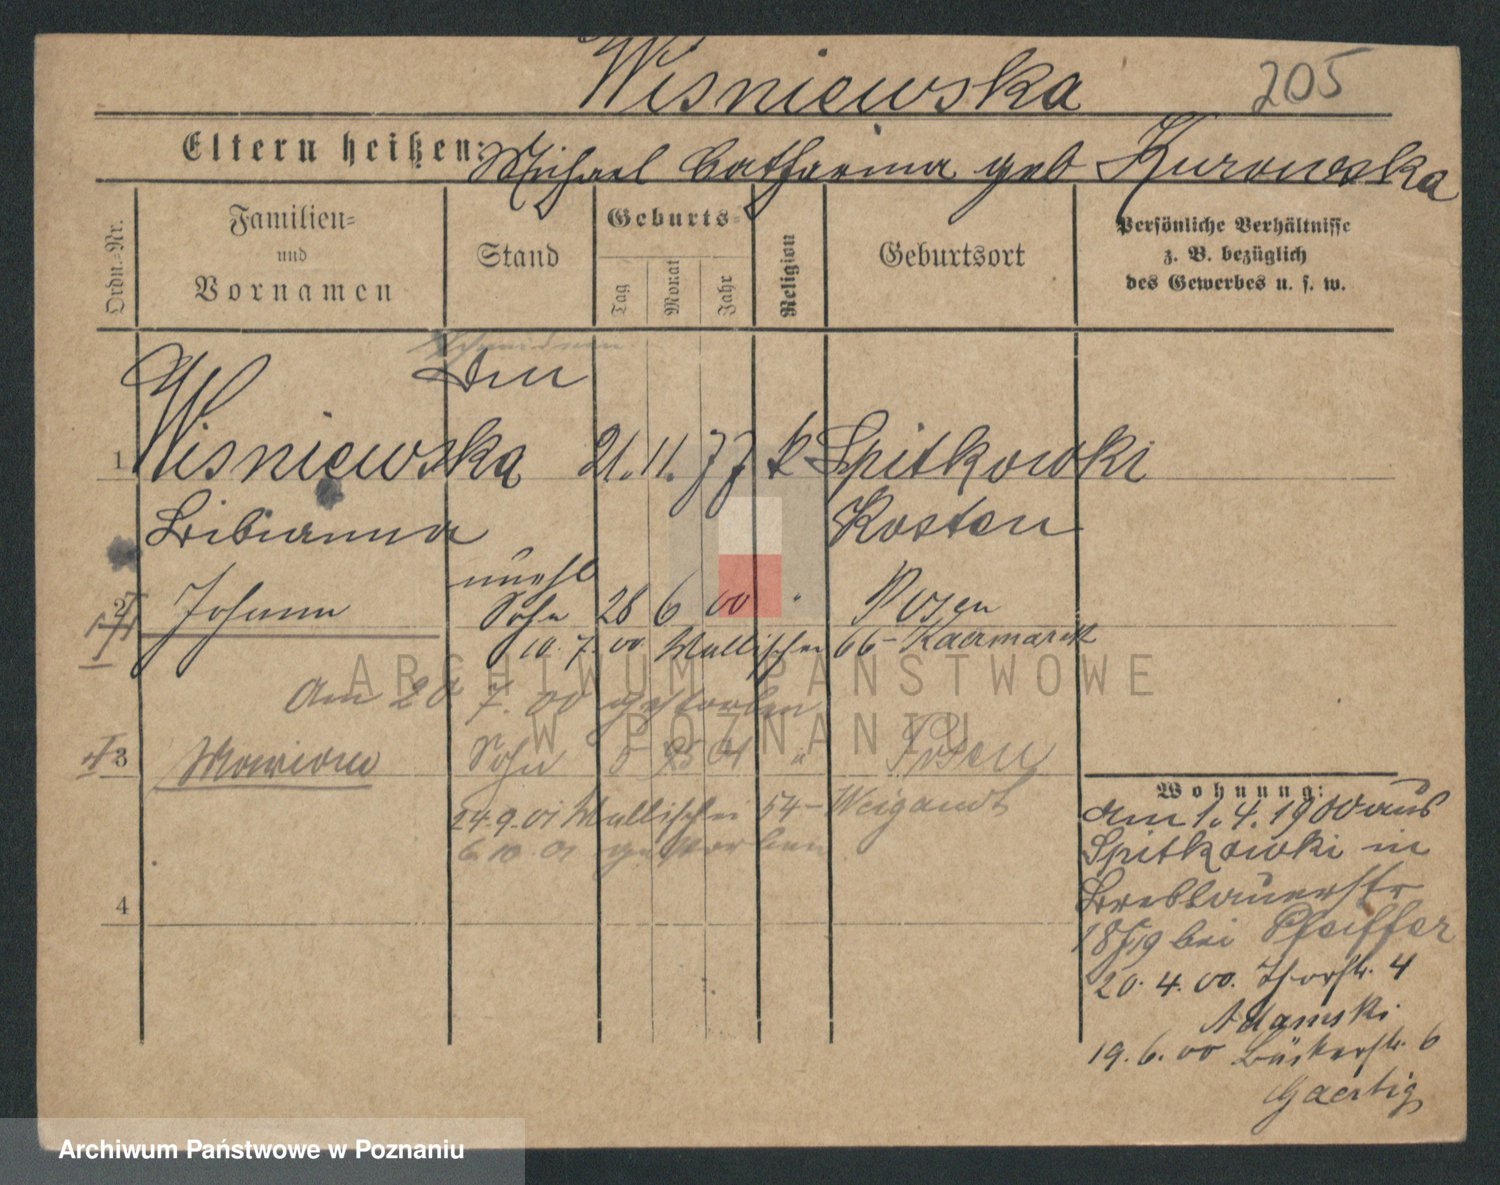 Wisniewska 205
Eltern heißen: Michael Catharina geb Kurowska
Ordn.=Nr.
Familien=
und
Vornamen
Stand
Geburts=
Tag
Monat
Jahr
Religion
Geburtsort
Persönliche Verhältnisse
z. B. bezüglich
des Gewerbes u. s. w.
1 Wisniewska 21. 11. 77 k Spitkowki
Bibianna Kosten
unehl
2 Johann Sohn 28 6 00 " Posen
10. 7. 00 Wallischei 66 - Kaczmarek
Am 20 7. 00 gestorben
3 Marian Sohn 5 01 " Posen
24. 9. 01 Wallischei 54 - Weigandt
6. 10. 01 gestorben
4
Wohnung:
am 1. 4. 1900 aus
Spitkowki in
Breslauerstr
18/19 bei Pfeiffer
20. 4. 00. Thorstr. 4
Adamski
19. 6. 00 Bäckerstr. 6
Gaertig
ARCHIWUM PAŃSTWOWE
W POZNANIU
Archiwum Państwowe w Poznaniu